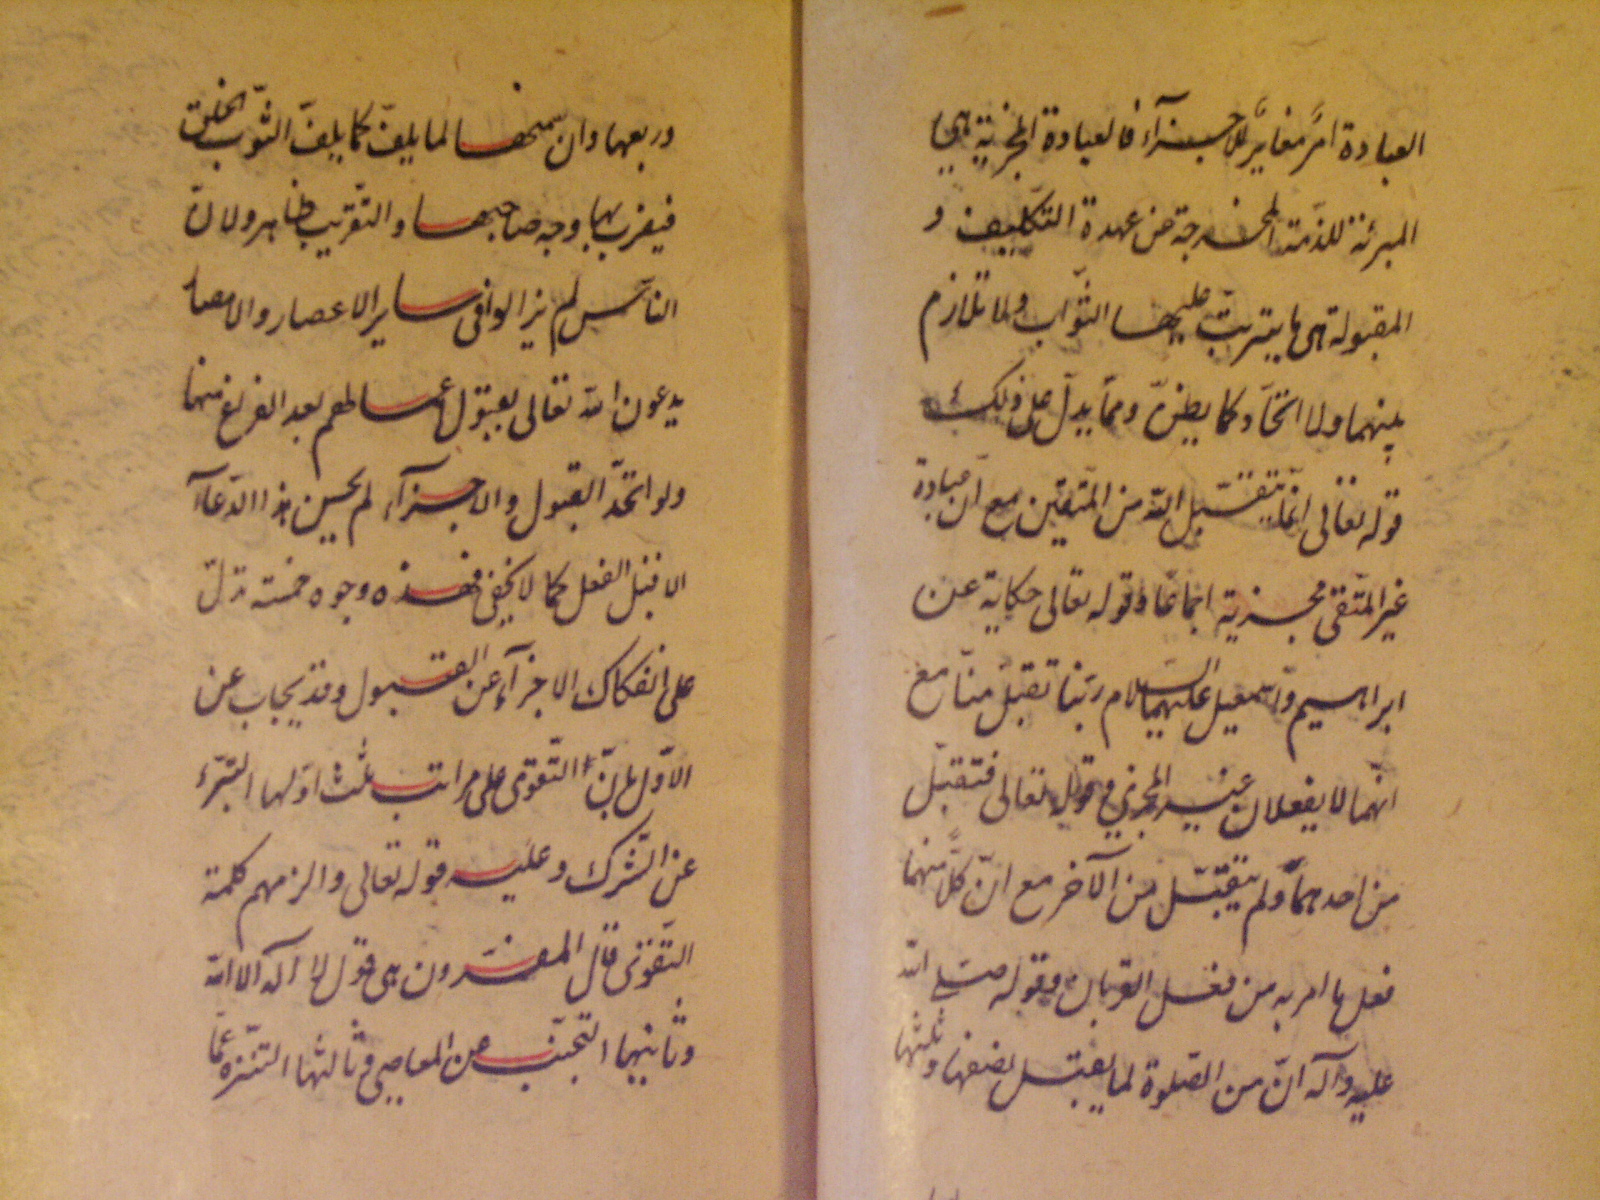 العبادة امرٌ مغايرٌ للاجزآء فالعبادة المجزية هي
المبرئة للذمّة المخرجة عن عهدة التكليف و
المقبولة هي ما يترتّب عليها الثّواب ولا تلازم
بينهما ولا اتحاد كما يظنّ وممّا يدلّ على ذلك
قوله تعالى انّما يتقبّل الله من المتّقين مع انّ عبادة
غير المتّقى مجزية اجماعًا وقوله تعالى حكاية عن
ابراهيم واسمعيل عليهما السلام ربّنا تقبّل منّا مع
انّهما لا يفعلان غير المجزى وقوله تعالى فتقبّل
من احدهما ولم يتقبّل من الآخر مع انّ كلًّا منهما
فعل ما امر به من فعل القربان وقوله صلى الله
عليه وآله انّ من الصّلوة لما يقبل نصفها وثلثها
وربعها وان منها لما يلفّ كما يلفّ الثّوب الخلق
فيضرب بها وجه صاحبها والتقريب ظاهر ولانّ
النّاس لم يزالوا فى ساير الاعصار والامصار
يدعون الله تعالى بقبول اعمالهم بعد الفراغ منها
ولو اتحدّ القبول والاجزآء لم يحسن هذا الدّعآء
الا قبل الفعل كما لا يخفى فهذه وجوه خمسة تدلّ
على انفكاك الاجزآء عن القبول وقد يجاب عن
الاوّل بانّ التّقوى على مراتب ثلث اوّلها التبرّء
عن الشّرك وعليه قوله تعالى والزمهم كلمة
التّقوى قال المفسّرون هى قول لا آله الا الله
وثانيها التجنّب عن المعاصى وثالثها التنزّه عمّا